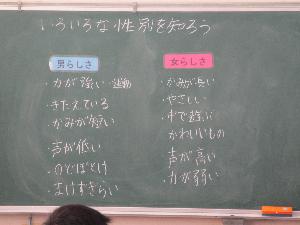 いろいろな性別を知ろう
男らしさ
・力が強い・運動
・きたえている
かみが短い
・声が低い
・のどぼとけ
・まけずぎらい
女らしさ
・かみが長い
・やさしい
・中で遊ぶ
かわいいもの
・声が高い
・力が弱い